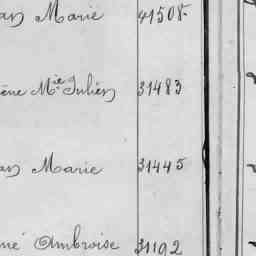 an Marie 41508.
ène Mie Julien 31483
an Marie 31445
né Ambroise 31192